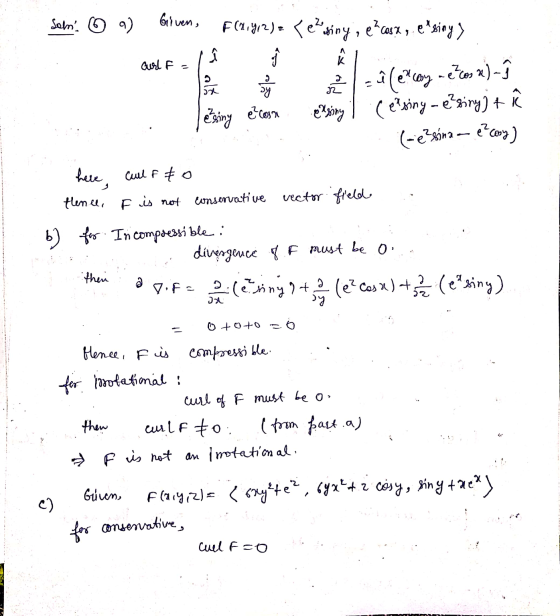 Soln: ⑥ a) Given, F(x,y,z) = < e^z siny, e^z cosx, e^x siny >
curl F = | î ĵ k̂ |
| ∂/∂x ∂/∂y ∂/∂z | = î (e^x cosy - e^z cos x) - ĵ
| e^z siny e^z cosx e^x siny | (e^x siny - e^z siny) + k̂
(-e^z sinx - e^z cosy)
here, curl F ≠ 0
Hence, F is not conservative vector field.
b) for Incompressible :
divergence of F must be 0.
then ∂ ∇.F = ∂/∂x (e^z siny) + ∂/∂y (e^z cosx) + ∂/∂z (e^x siny)
= 0+0+0 = 0
Hence, F is compressible.
for irrotational :
curl of F must be 0.
then curl F ≠ 0. (from part a)
⇒ F is not an irrotational.
c) Given, F(x,y,z) = < 6xy²+e^z, 6yx²+z cosy, siny+xe^z >
for conservative,
curl F = 0